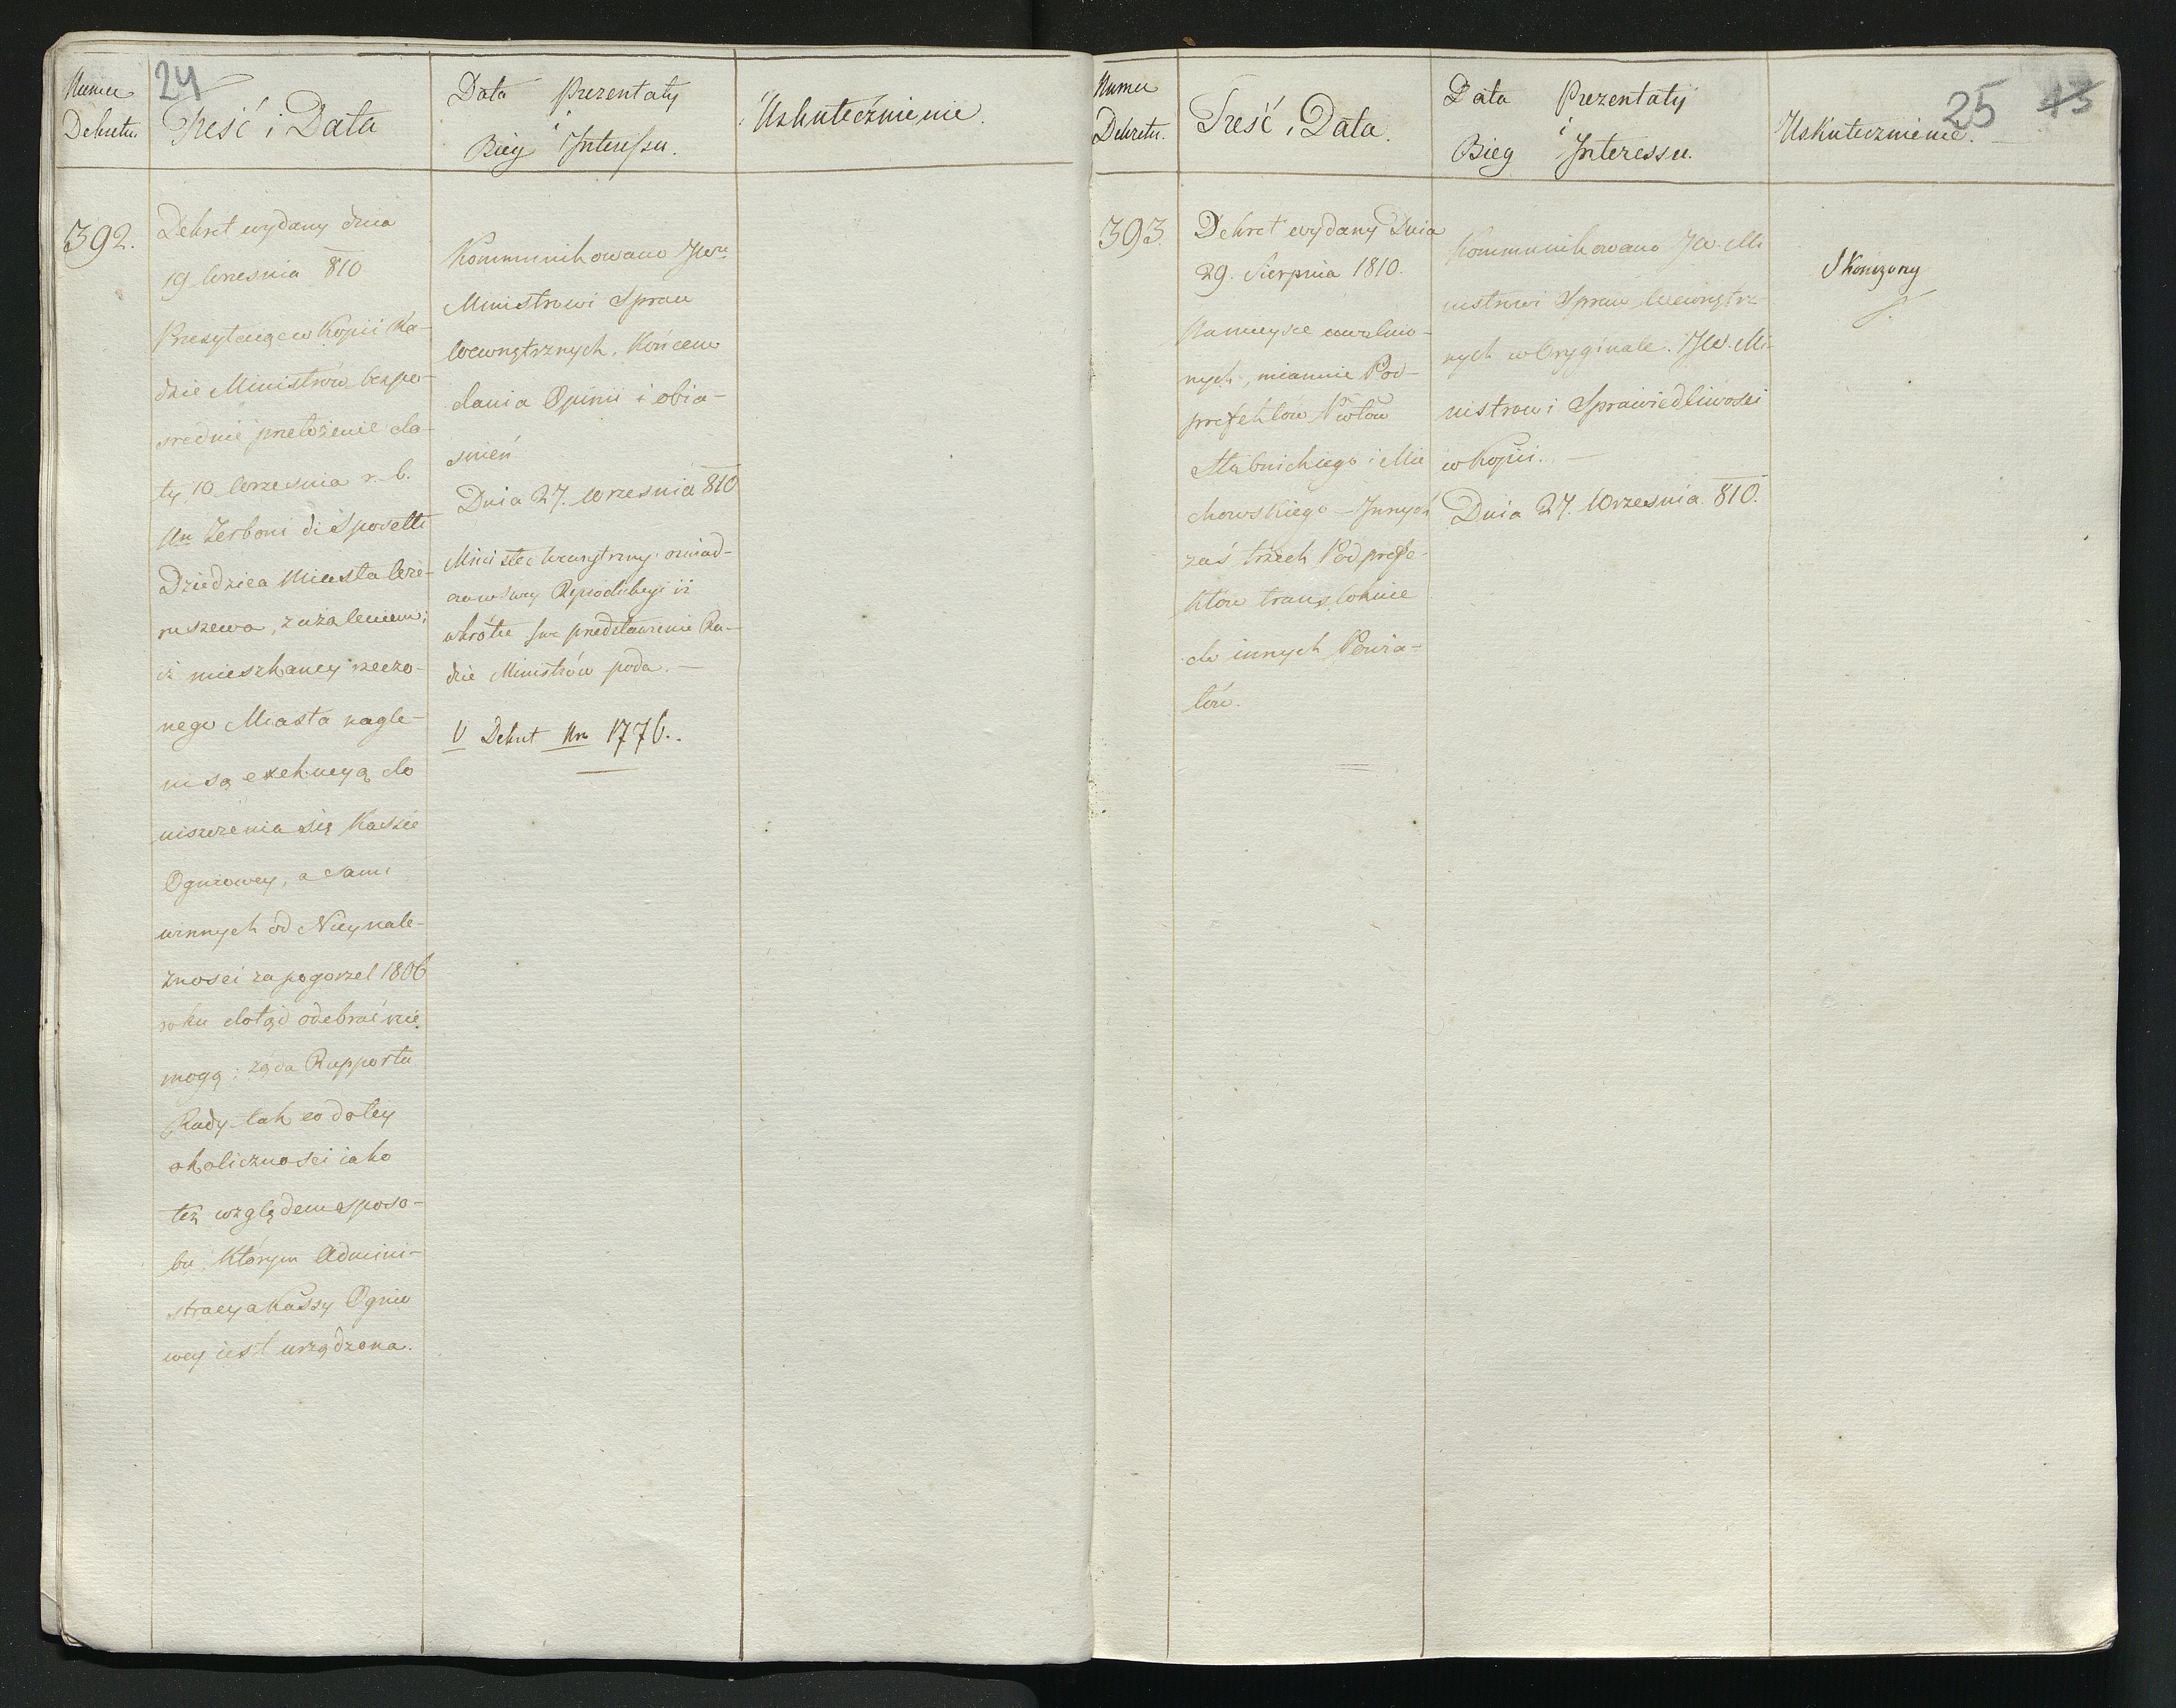 24
Numer
Dekretu
Treść i Data
Data Prezentaty
i
Bieg Interessu.
Uskutecznienie.
392.
Dekret wydany dnia
19 Wrzesnia 810
Przesyłaięc w Kopii Ra-
dzie Ministrów bezpo-
srednie przełożenie da-
ty 10 Wrzesnia r. b.
Un Zerboni di Sposetti
Dziedzica Miasta Wie-
ruszewa, z użaleniem,
iż mieszkancy rzeczo-
nego Miasta nagle-
ni są exekucyą do
uiszczenia się Kassie
Ogniowey, a sami
winnych od Niey nale-
znosci za pogorzel 1806
roku dotąd odebrać nie
mogą; ząda Rapportu
Rady tak co do tey
okolicznosci iako
też względem sposo-
bu, którym Admini-
stracya Kassy Ognio
wey iest urządzona.
Kommunikowano JWu
Ministrowi Spraw
Wewnętrznych, Końcem
dania Opinii i obia-
snień
Dnia 27. Wrzesnia 810
Minister Wewnętrzny oswiad-
w krótce swe przedstawienie Ra-
dzie Ministrów poda. —
V Dekret Nro 1776.
25 13
Numer
Dekretu.
Treść i Data.
Data Prezentaty
i
Bieg Interessu.
Uskutecznienie.
393.
Dekret wydany Dnia
29. Sierpnia 1810.
Na mieysce uwolnio-
nych, mianuie Pod-
prefektów Powtów
Stabnickiego i Mie
chowskiego – Innych
zaś trzech Podprefe-
któw translokuie
do innych Powia-
tów.
Kommunikowano JW. Mi
nistrowi Spraw Wewnętrz-
nych w Oryginale. JW. Mi-
nistrowi Sprawiedliwosci
w Kopii. —
Dnia 27. Wrzesnia 810.
Skończony